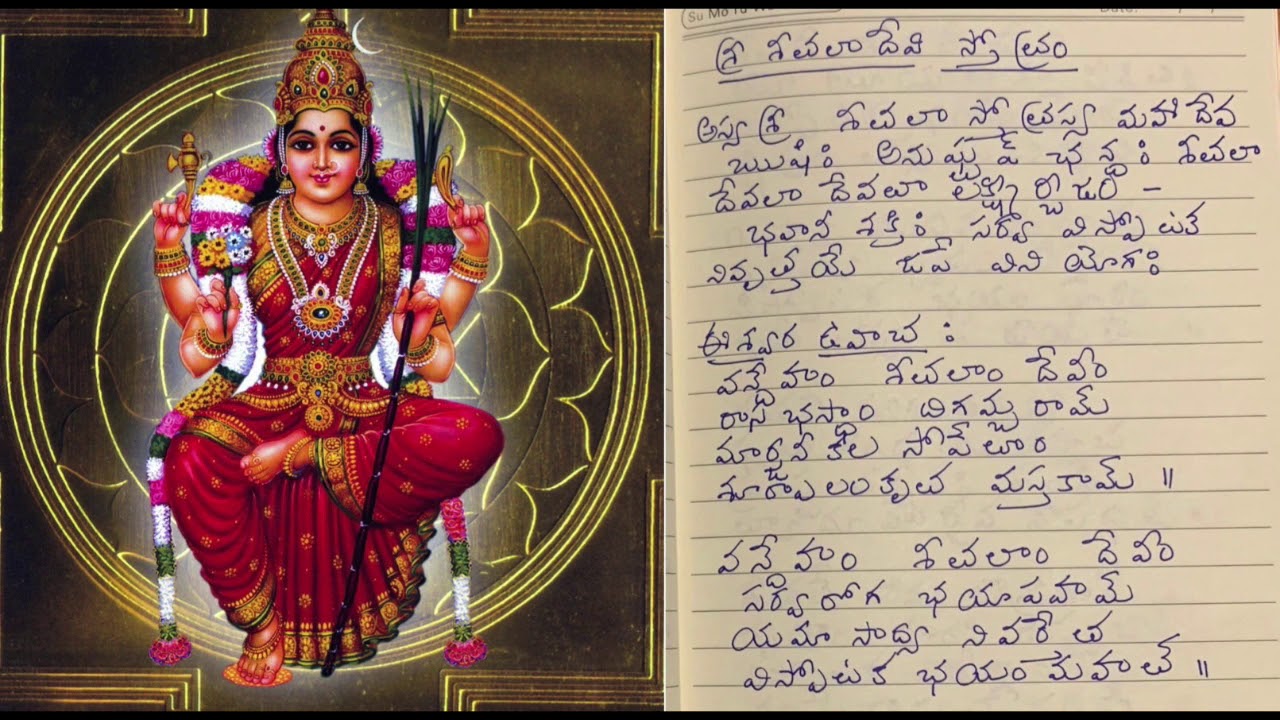 Su Mo Tu W
Date:
శ్రీ శీతలాదేవి స్తోత్రం
అస్య శ్రీ శీతలా స్తోత్రస్య మహాదేవ
ఋషిః అనుష్టుప్ ఛన్దః శీతలా
దేవతా దేవతా లక్ష్మీర్బీజం -
భవానీ శక్తిః సర్వ విస్పోటక
నివృత్తయే జపే వినియోగః
ఈశ్వర ఉవాచ :
వన్దేహం శీతలాం దేవీం
రాసభస్థాం దిగమ్బరామ్
మార్జనీ కల సోపేతాం
శూర్పాలంకృత మస్తకామ్ ॥
వన్దేహం శీతలాం దేవీం
సర్వ రోగ భయాపహామ్
యమా సాద్య నివర్తేత
విస్పోటక భయం మహత్ ॥